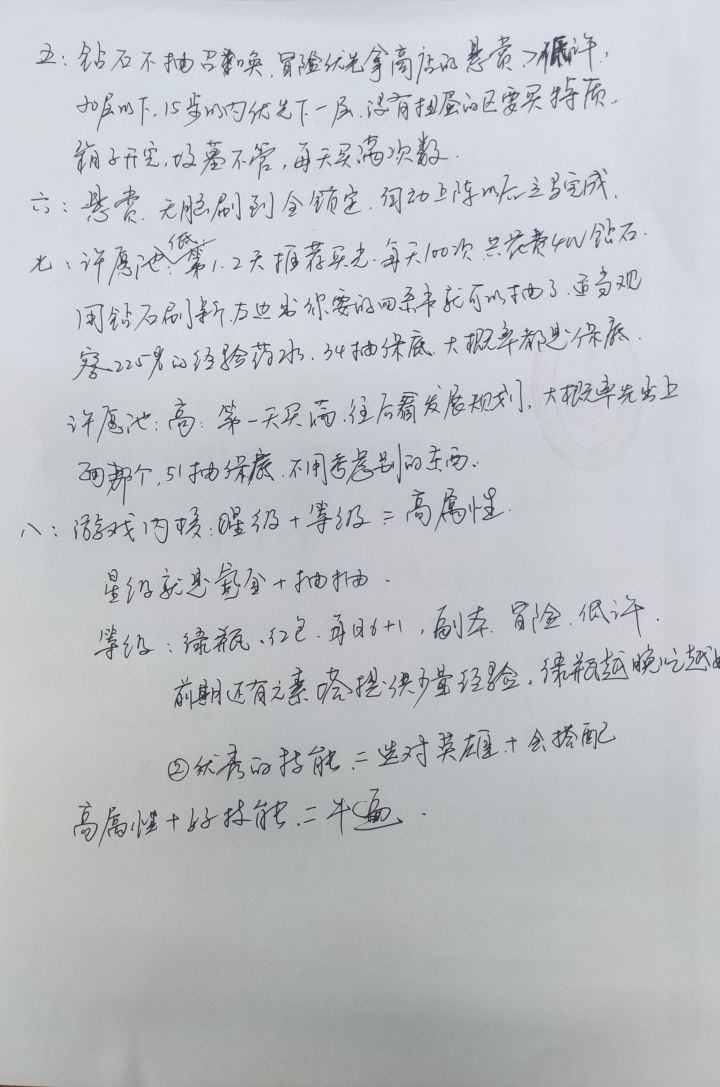 五:钻石不抽召唤,冒险优先拿高店的悬赏>低许,
90层以下,15步以内优先下一层,没有扭蛋的区要买特质,
箱子开完,坟墓不管,每天买满次数.
六:悬赏.无脑刷到全锁定.自动上阵以后立马完成.
七:许愿池:低 第1.2天推荐买光.每天100次 共花费4W钻石.
用钻石刷新,左边出你要的四系书就可以抽了.适当观
察225%的经验药水.34抽保底.大概率都是保底.
许愿池:高:第一天买满,往后看发展规划,大概率先出上
面那个,51抽保底.不用考虑别的东西.
八:游戏内核:星级+等级=高属性.
星级就是氪金+抽抽.
等级:绿瓶、红包.每日6+1,副本.冒险.低许.
前期还有元素塔提供少量经验,绿瓶越晚吃越
②优秀的技能=选对英雄+会搭配
高属性+好技能=牛逼.